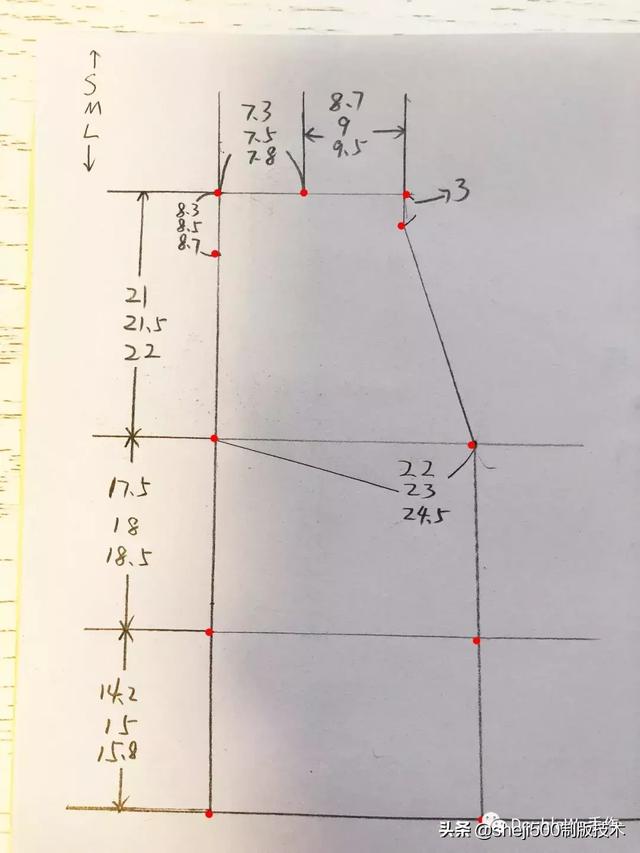 S
M
L
7.3
7.5
7.8
8.7
9
9.5
3
8.3
8.5
8.7
21
21.5
22
22
23
24.5
17.5
18
18.5
14.2
15
15.8
头条 @sheji500制版技术